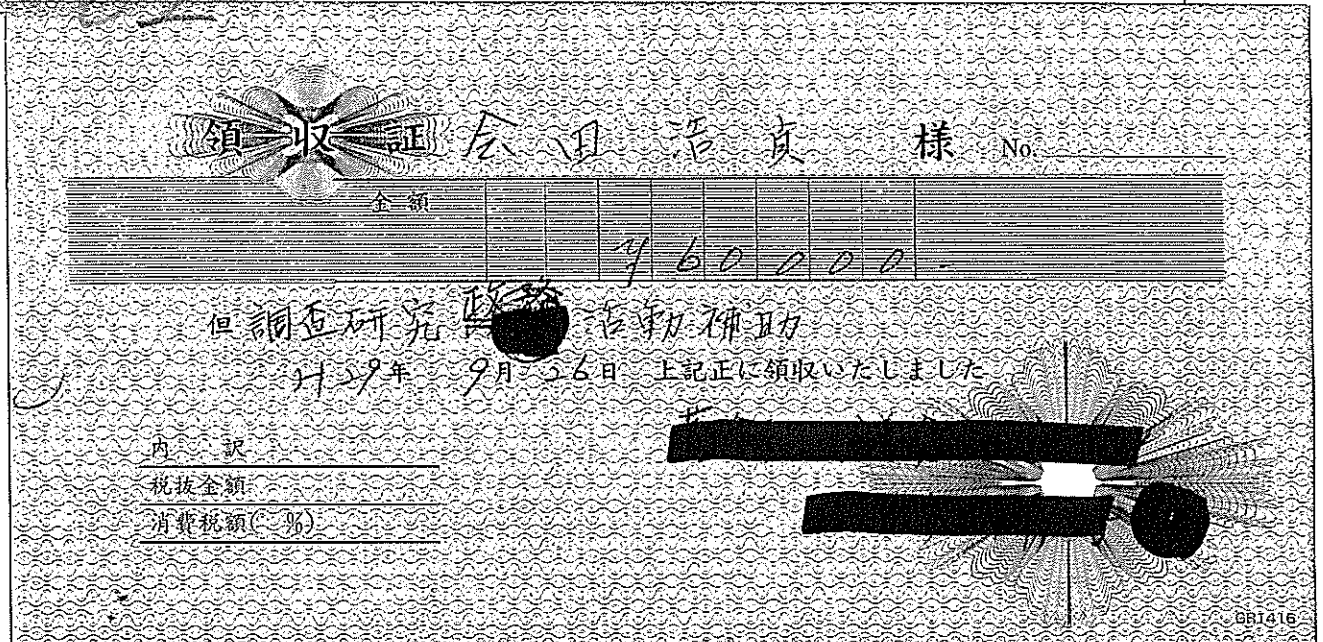 領収証 会田浩貞 様 No.
金額 ¥60000-
但 調査研究 政務 活動補助
H29年 9月 26日 上記正に領収いたしました
内 訳
税抜金額
消費税額( %)
GR1416